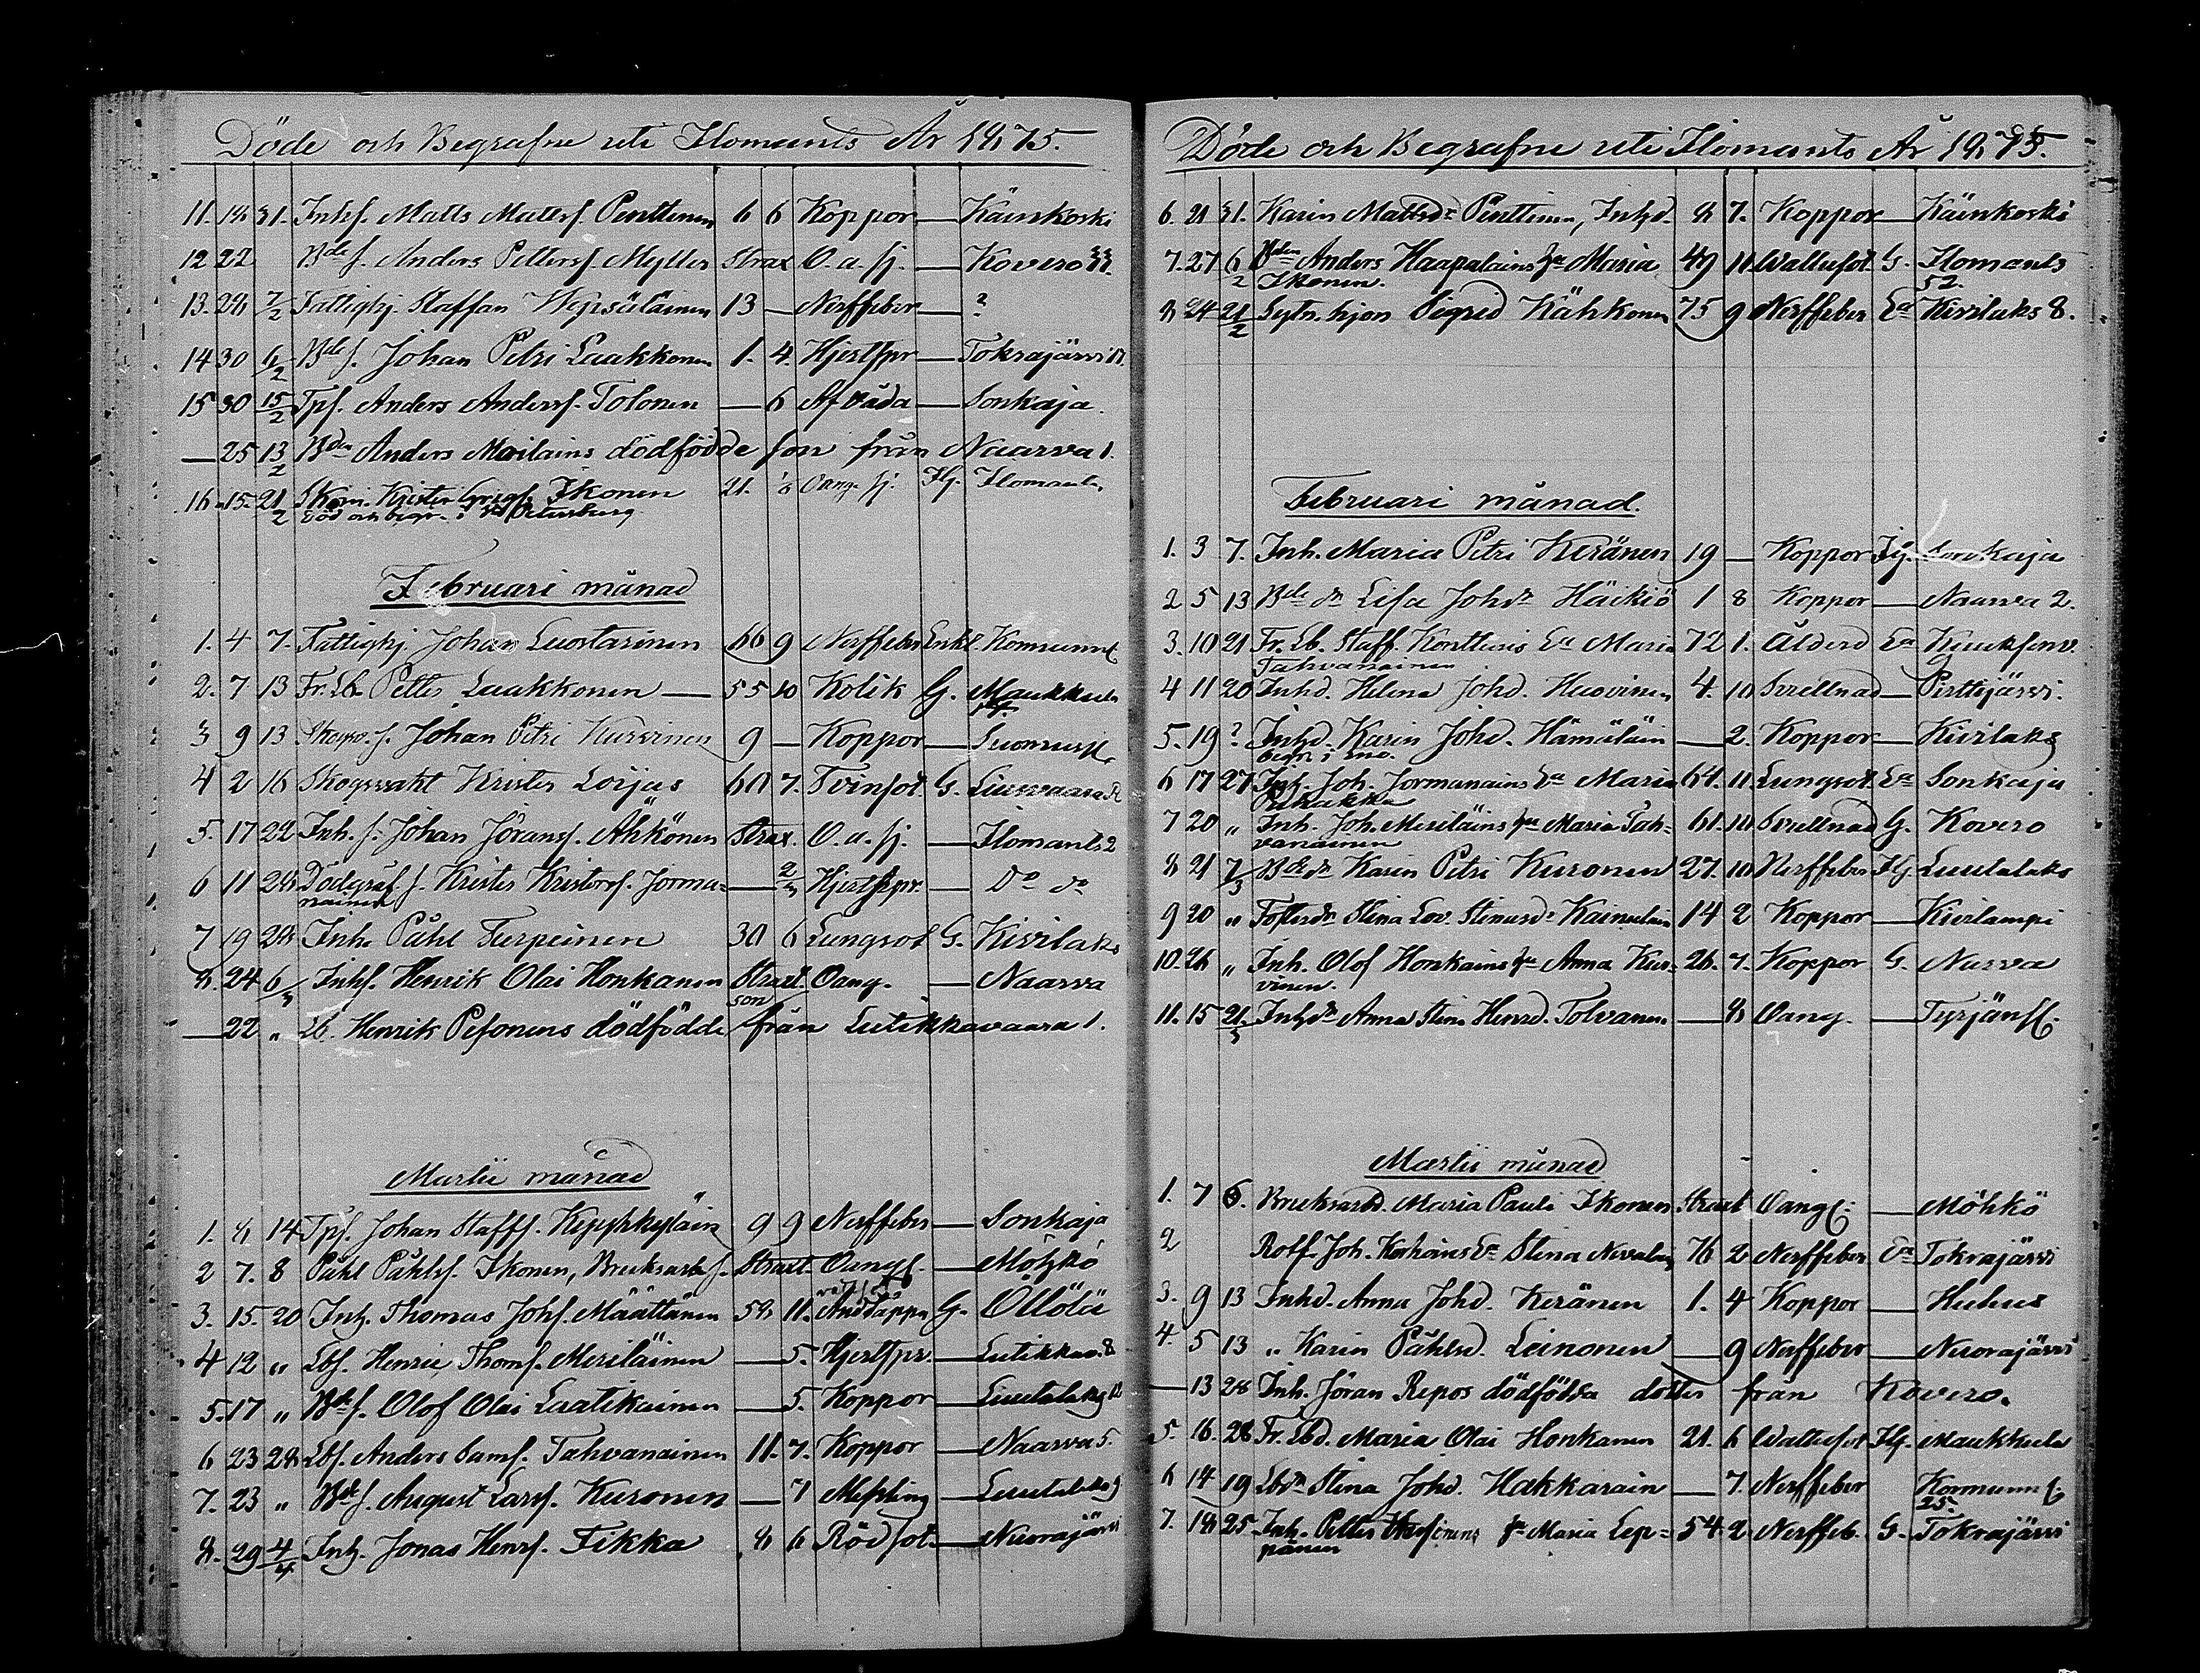 Döde och Begrafne uti Ilomants År 1875.
11. 18 31. Inhs. Matts Mattsf. Penttinen 6 6 Koppor — Känkoski
12 22 Bde f. Anders Pettersf. Myller Strax O. a. sj. — Kovero 33.
13. 28 7/2 Fattighj. Staffan Hepsöläinen 13 — Nerffeber — ?
14 30 6/2 Bde f. Johan Petri Laakkonen 1. 4. Hjertspr — Tokrajärvi 17.
15 30 15/2 Tpf. Anders Andersf. Tolonen — 6 Af våda — Sonkaja.
— 25 13/2 Bden Anders Moilains dödfödde son från Naarva 1.
16. 15. 21/2 Krister Ikonen 21. 8 Oang. sj. Hj. Ilomants
död och begr. i St Petersburg
Februari månad
1. 4 7. Fattighj. Johan Luostarinen 66 9 Nerffeber Enkl. Kommunns
2. 7 13 Fr. Lb. Petter Laakkonen — 55 10 Kolik G. Maukkula
3 9 13 Johan Petri Kurvinen 9 — Koppor —
4 2 16 Skogsvakt Krister Loijas 60 7. Tvinsot. G. Liusvaara
5. 17 22 Inh. f. Johan Göransf. Ahkönen Strax. O. a. sj. — Ilomants 2
6 11 28 Dödgräf. f. Krister Kristersf. Jorma-
nainen — Hjertspr. — Do do
7 19 28 Inh. Påhl Turpeinen 30 6 Lungsot G. Kivilaks
8. 24 6/3 Inhf. Henrik Olai Honkanen Straxt. Oang. — Naarva
— 22 „ Lb. Henrik Pesonens dödfödde son från Lutikkavaara 1.
Martii månad
1. 8 14 Tpf. Johan Staffs. Kejephkyläin 9 9 Nerffeber — Sonkaja
2 7. 8 Påhl Påhlsf. Ikonen, Bruksarb. f. Straxt Oangf. — Möhkö
3. 15. 20 Inh. Thomas Johf. Määttänen 58 11. Andtäppa G. Ollölä
4 12 „ Lbf. Henric Thomf. Meriläinen — 5. Hjertspr. — Lutikkav. 8
5. 17 „ Bde f. Olof Olai Laatikainen — 5. Koppor — Luutalaks 12
6 23 28 Lbf. Anders Samf. Tahvanainen 11. 7. Koppor — Naarva 5.
7. 23 „ Bde f. August Larsf. Kuronen — 7 Messling — Luutalaks 9
8. 29 4/4 Inh. Jonas Henrf. Tikka 8 6 Rödsot. — Nuorajärvi
Döde och Begrafne uti Ilomants År 1875.
6. 21 31. Karin Mattsdr Penttinen, Inhd. 8 7. Koppor — Känkoski
7. 27 6/2 Bden Anders Haapalains hu Maria 49 11 Wattusot. G. Ilomants
Ikonen. 52.
8 24 21/2 Sytn. hjon Sigrid Kähkonen 75 9 Nerffeber Ea Kivilaks 8.
Februari månad.
1. 3 7. Inh. Maria Petri Keränen 19 — Koppor Hj. Sonkaja
2 5 13 Bde dr Lisa Johdr Häikiö 1 8 Koppor — Naarva 2.
3. 10 21 Fr. Lb. Staff. Konttinis Ea Maria 72 1. Ålderd Ea
Tahvanainen
4 11 20 Inhd. Helena Johd. Huovinen 4. 10 Svullnad — Perttijärvi.
5. 19 ? Inhd. Karin Johd. Hämäläin — 2. Koppor — Kivilaks
begr. i Eno.
6 17 27 Inh. Joh. Jormanains Ea Maria 64. 11 Lungsot. Ea Sonkaja
Puhakka
7 20 „ Inh. Joh. Meriläins hu Maria Tah-
vanainen 61. 10 Svullnad G. Kovero
8 21 7/3 Bde dr Karin Petri Kuronen 27. 10 Nerffeber Hj Luutalaks
9 20 „ Fosterdr Stina Lov. Stinasdr Kainulain 14 2 Koppor — Kivilampi
10. 26 „ Inh. Olof Honkains hu Anna Kur-
vinen. 26. 7. Koppor G. Narva
11. 15 21/3 Inhdr Anna Stina Henrd. Tolvanen. — 8 Oang. —
Martii månad
1. 7 6. Bruksarbd. Maria Pauli Ikonen Straxt Oangf. — Möhkö
2 Rotf. Joh. Korhoins Ea Stina Nevalain 76 2 Nerffeber Ea Tokrajärvi
3. 9 13 Inhd. Anna Johd. Keränen 1. 4 Koppor — Huhus
4. 5 13 „ Karin Påhlsd. Leinonen — 9 Nerffeber — Nuorajärvi
— 13 28 Inh. Jöran Repos dödfödda dotter från Kovero.
5. 16. 28 Fr. Lbd. Maria Olai Honkanen 21. 6 Wattusot Hj. Maukkula
6 14 19 Lbdr Stina Johd. Hakkarain — 7. Nerffeber Kommunns
25.
7. 18 25. Inh. Petter hu Maria Lep-
pänen 54 2 Nerffeb. G. Tokrajärvi